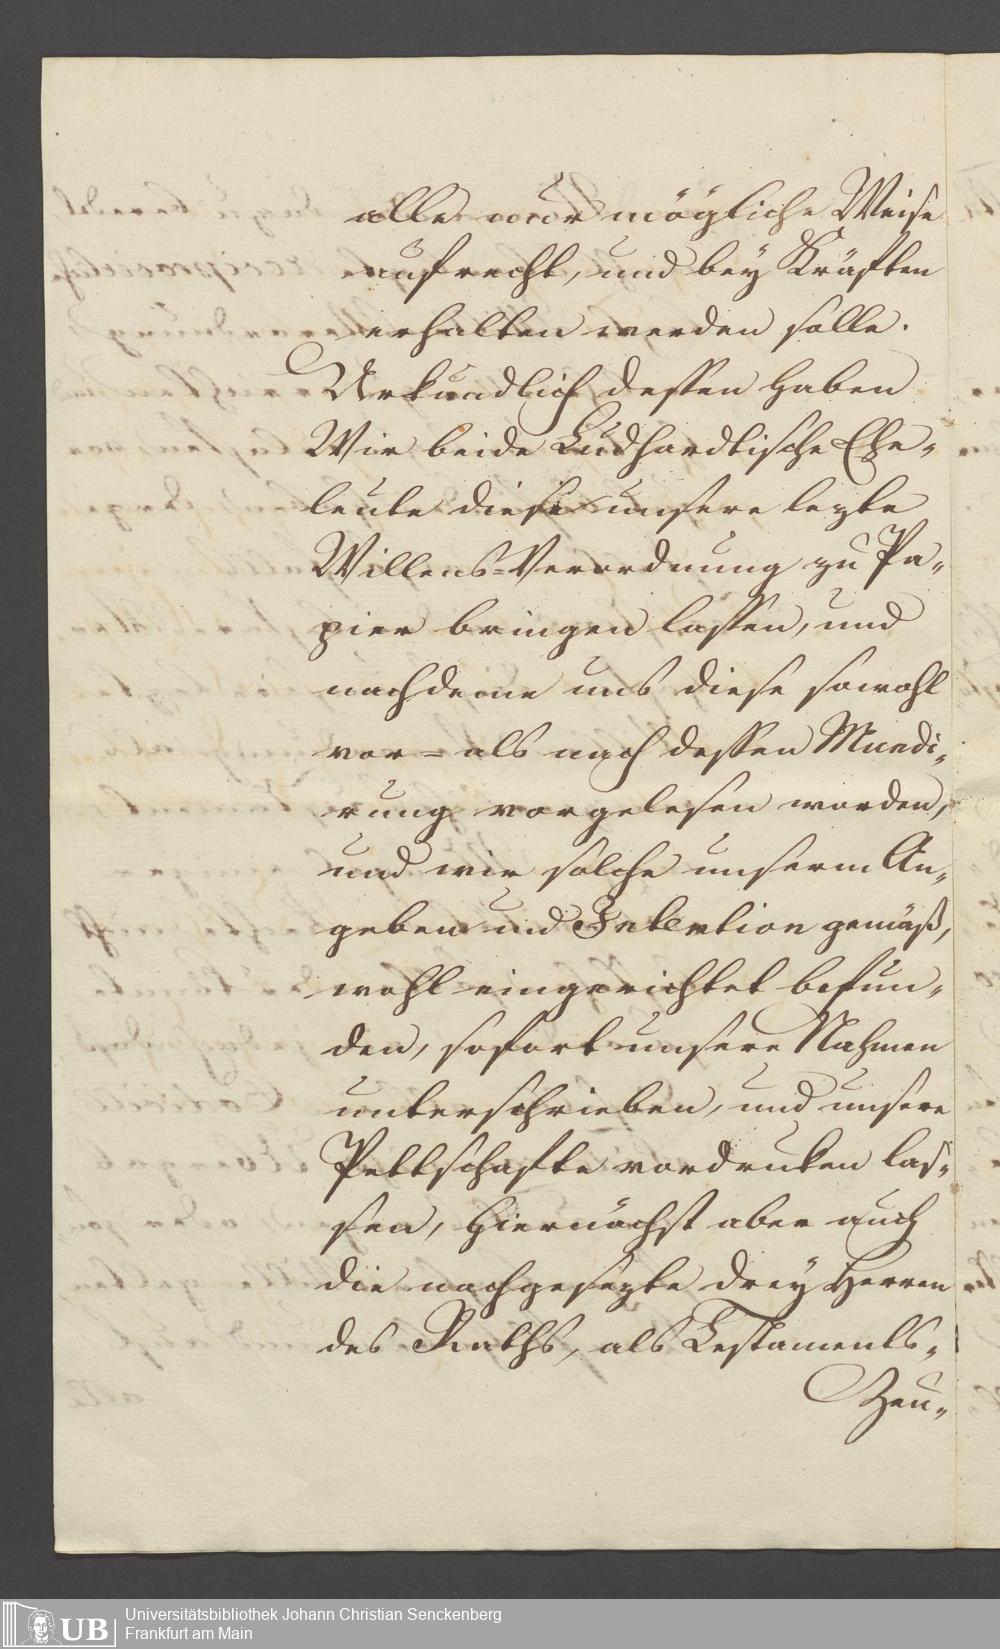 alle nur mögliche Weise
aufrecht, und bey Kräften
erhalten werden solle.
Urkundlich dessen haben
Wir beide Ludhardtische Ehe-
leute diese unsere lezte
Willens-Verordnung zu Pa-
pier bringen lassen, und
nachdeme uns diese sowohl
vor- als nach dessen Mundi-
rung vorgelesen worden,
und wir solche unserm An-
geben und Intention gemäß,
wohl eingerichtet befun-
den, sofort unsere Nahmen
unterschrieben, und unsere
Pettschafte vordruken las-
sen, hiernächst aber auch
die nachgesezte drey Herren
des Raths, als Testaments-
Zeu-
Universitätsbibliothek Johann Christian Senckenberg
Frankfurt am Main
UB